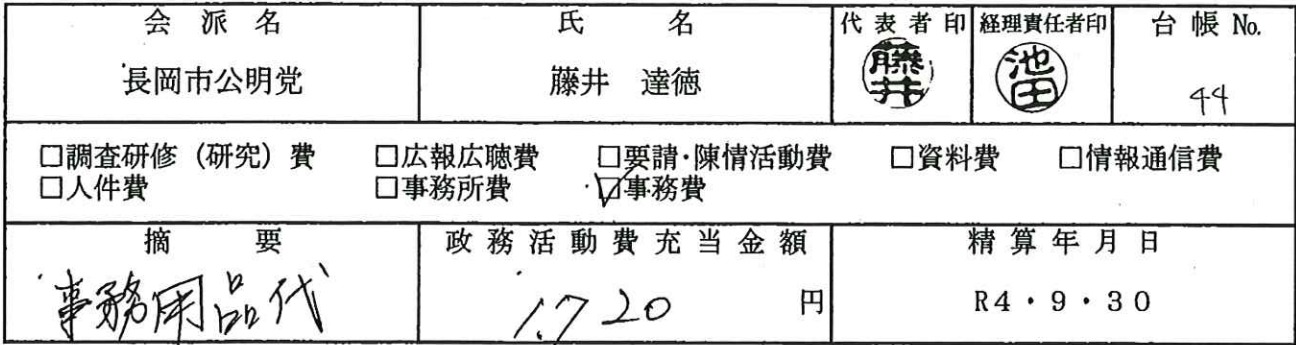 会派名 氏名 代表者印 経理責任者印 台帳No.
長岡市公明党 藤井 達徳 藤井 池田 44
□調査研修(研究)費 □広報広聴費 □要請・陳情活動費 □資料費 □情報通信費
□人件費 □事務所費 ☑事務費
摘要 政務活動費充当金額 精算年月日
事務用品代 1.720 円 R4・9・30